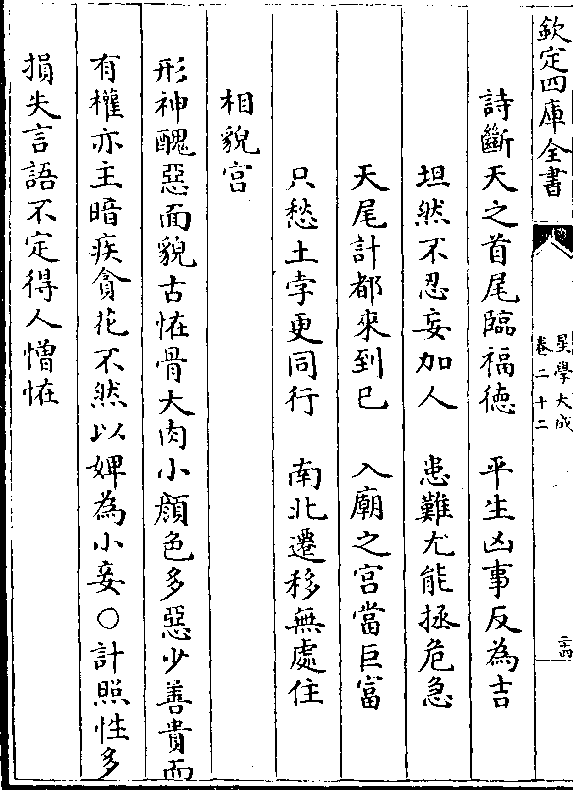 欽定四庫全書
星學大成
卷二十二
二十四
詩斷天之首尾臨福德　平生凶事反為吉
坦然不忍妄加人　患難尤能拯危急
天尾計都來到巳　入廟之宮當巨富
只愁土孛更同行　南北遷移無處住
相貌宮
形神醜惡面貌古怪骨大肉小顔色多惡少善貴而
有權亦主暗疾貪花不然以婢為小妾○計照性多
損失言語不定得人憎怪